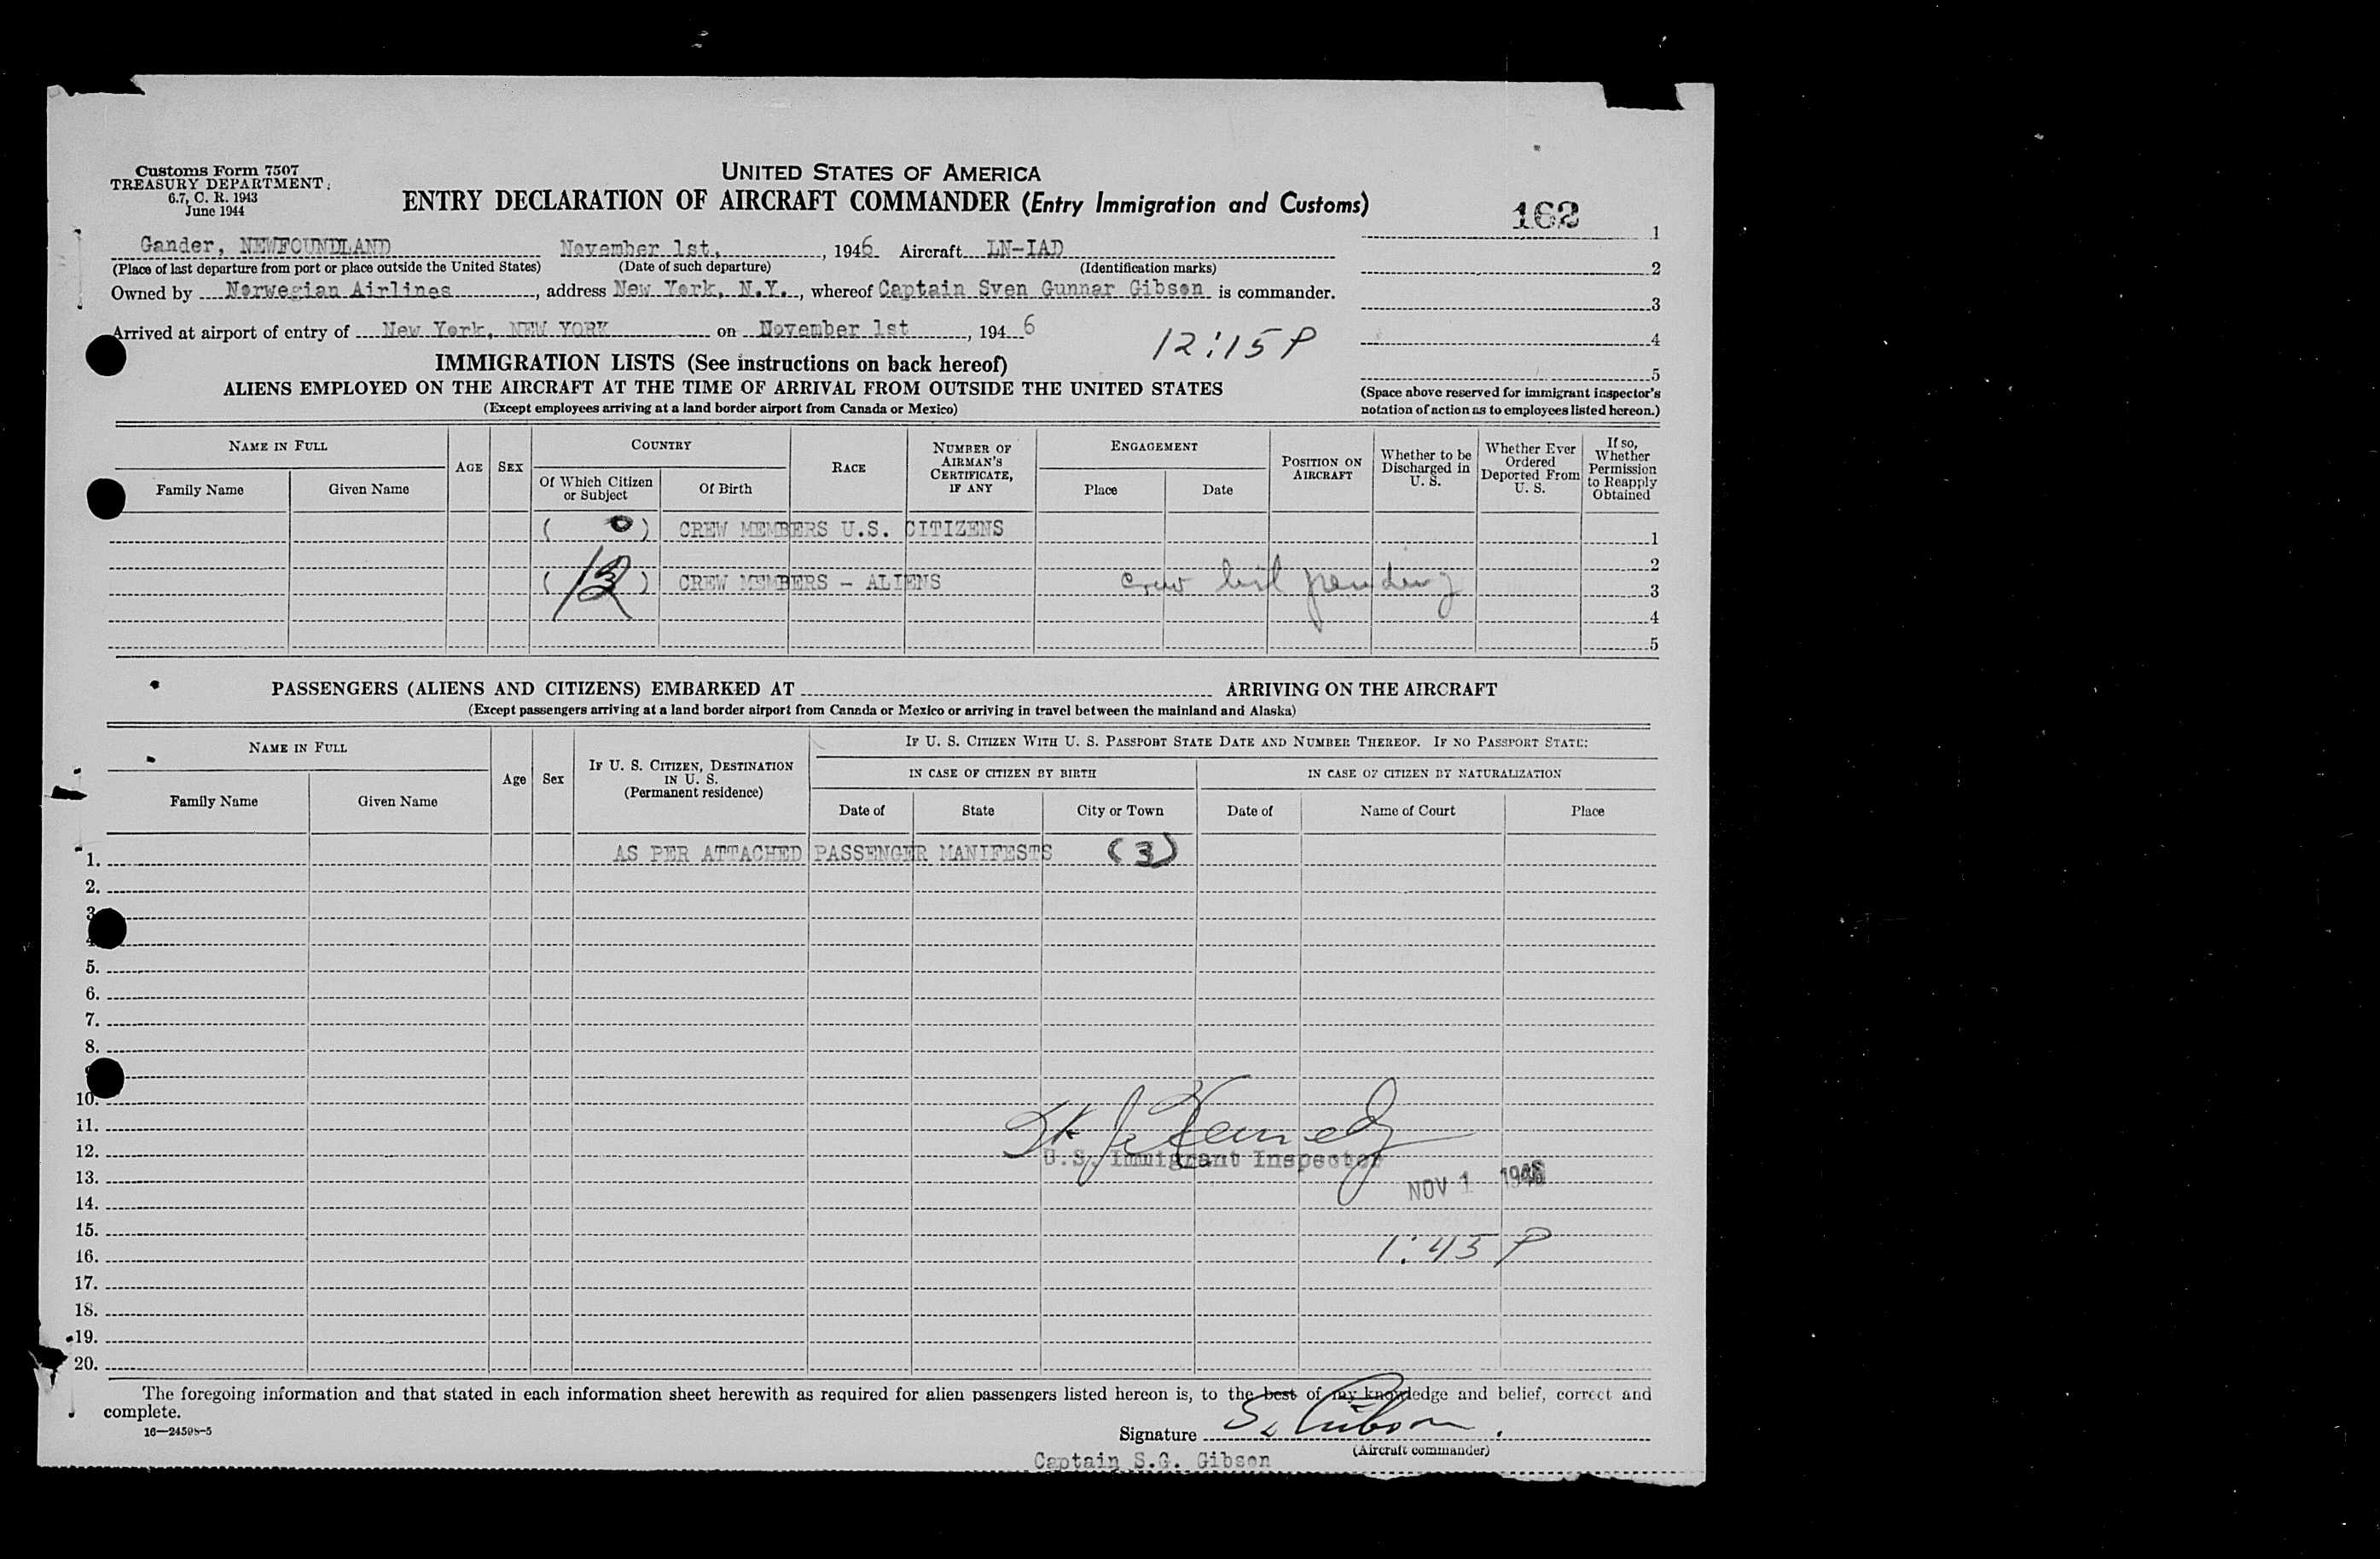 Customs Form 7507
TREASURY DEPARTMENT
6.7, C. R. 1943
June 1944
UNITED STATES OF AMERICA
ENTRY DECLARATION OF AIRCRAFT COMMANDER (Entry Immigration and Customs)
162
1
Gander, NEWFOUNDLAND November 1st, , 1946 Aircraft LN-IAD
(Place of last departure from port or place outside the United States) (Date of such departure) (Identification marks)
2
Owned by Norwegian Airlines, address New York, N.Y., whereof Captain Sven Gunnar Gibson is commander.
3
Arrived at airport of entry of New York, NEW YORK on November 1st, 194 6
12:15 P
4
IMMIGRATION LISTS (See instructions on back hereof)
5
ALIENS EMPLOYED ON THE AIRCRAFT AT THE TIME OF ARRIVAL FROM OUTSIDE THE UNITED STATES
(Except employees arriving at a land border airport from Canada or Mexico)
(Space above reserved for immigrant inspector's
notation of action as to employees listed hereon.)
NAME IN FULL
Family Name
Given Name
AGE
SEX
COUNTRY
Of Which Citizen
or Subject
Of Birth
RACE
NUMBER OF
AIRMAN'S
CERTIFICATE,
IF ANY
ENGAGEMENT
Place
Date
POSITION ON
AIRCRAFT
Whether to be
Discharged in
U. S.
Whether Ever
Ordered
Deported From
U. S.
If so,
Whether
Permission
to Reapply
Obtained
( 0 ) CREW MEMBERS U.S. CITIZENS
1
2
( ) CREW MEMBERS - ALIENS crew list pending
3
4
5
PASSENGERS (ALIENS AND CITIZENS) EMBARKED AT ARRIVING ON THE AIRCRAFT
(Except passengers arriving at a land border airport from Canada or Mexico or arriving in travel between the mainland and Alaska)
NAME IN FULL
Family Name
Given Name
Age
Sex
IF U. S. CITIZEN, DESTINATION
IN U. S.
(Permanent residence)
IF U. S. CITIZEN WITH U. S. PASSPORT STATE DATE AND NUMBER THEREOF. IF NO PASSPORT STATE:
IN CASE OF CITIZEN BY BIRTH
IN CASE OF CITIZEN BY NATURALIZATION
Date of
State
City or Town
Date of
Name of Court
Place
1. AS PER ATTACHED PASSENGER MANIFESTS (3)
2.
3
5.
6.
7.
8.
10.
11.
Kennedy
12.
U.S. Immigrant Inspector
13.
NOV 1 1946
14.
15.
1:45 P
16.
17.
18.
19.
20.
The foregoing information and that stated in each information sheet herewith as required for alien passengers listed hereon is, to the best of my knowledge and belief, correct and
complete.
16—24598-5
Signature S. Gibson
(Aircraft commander)
Captain S.G. Gibson